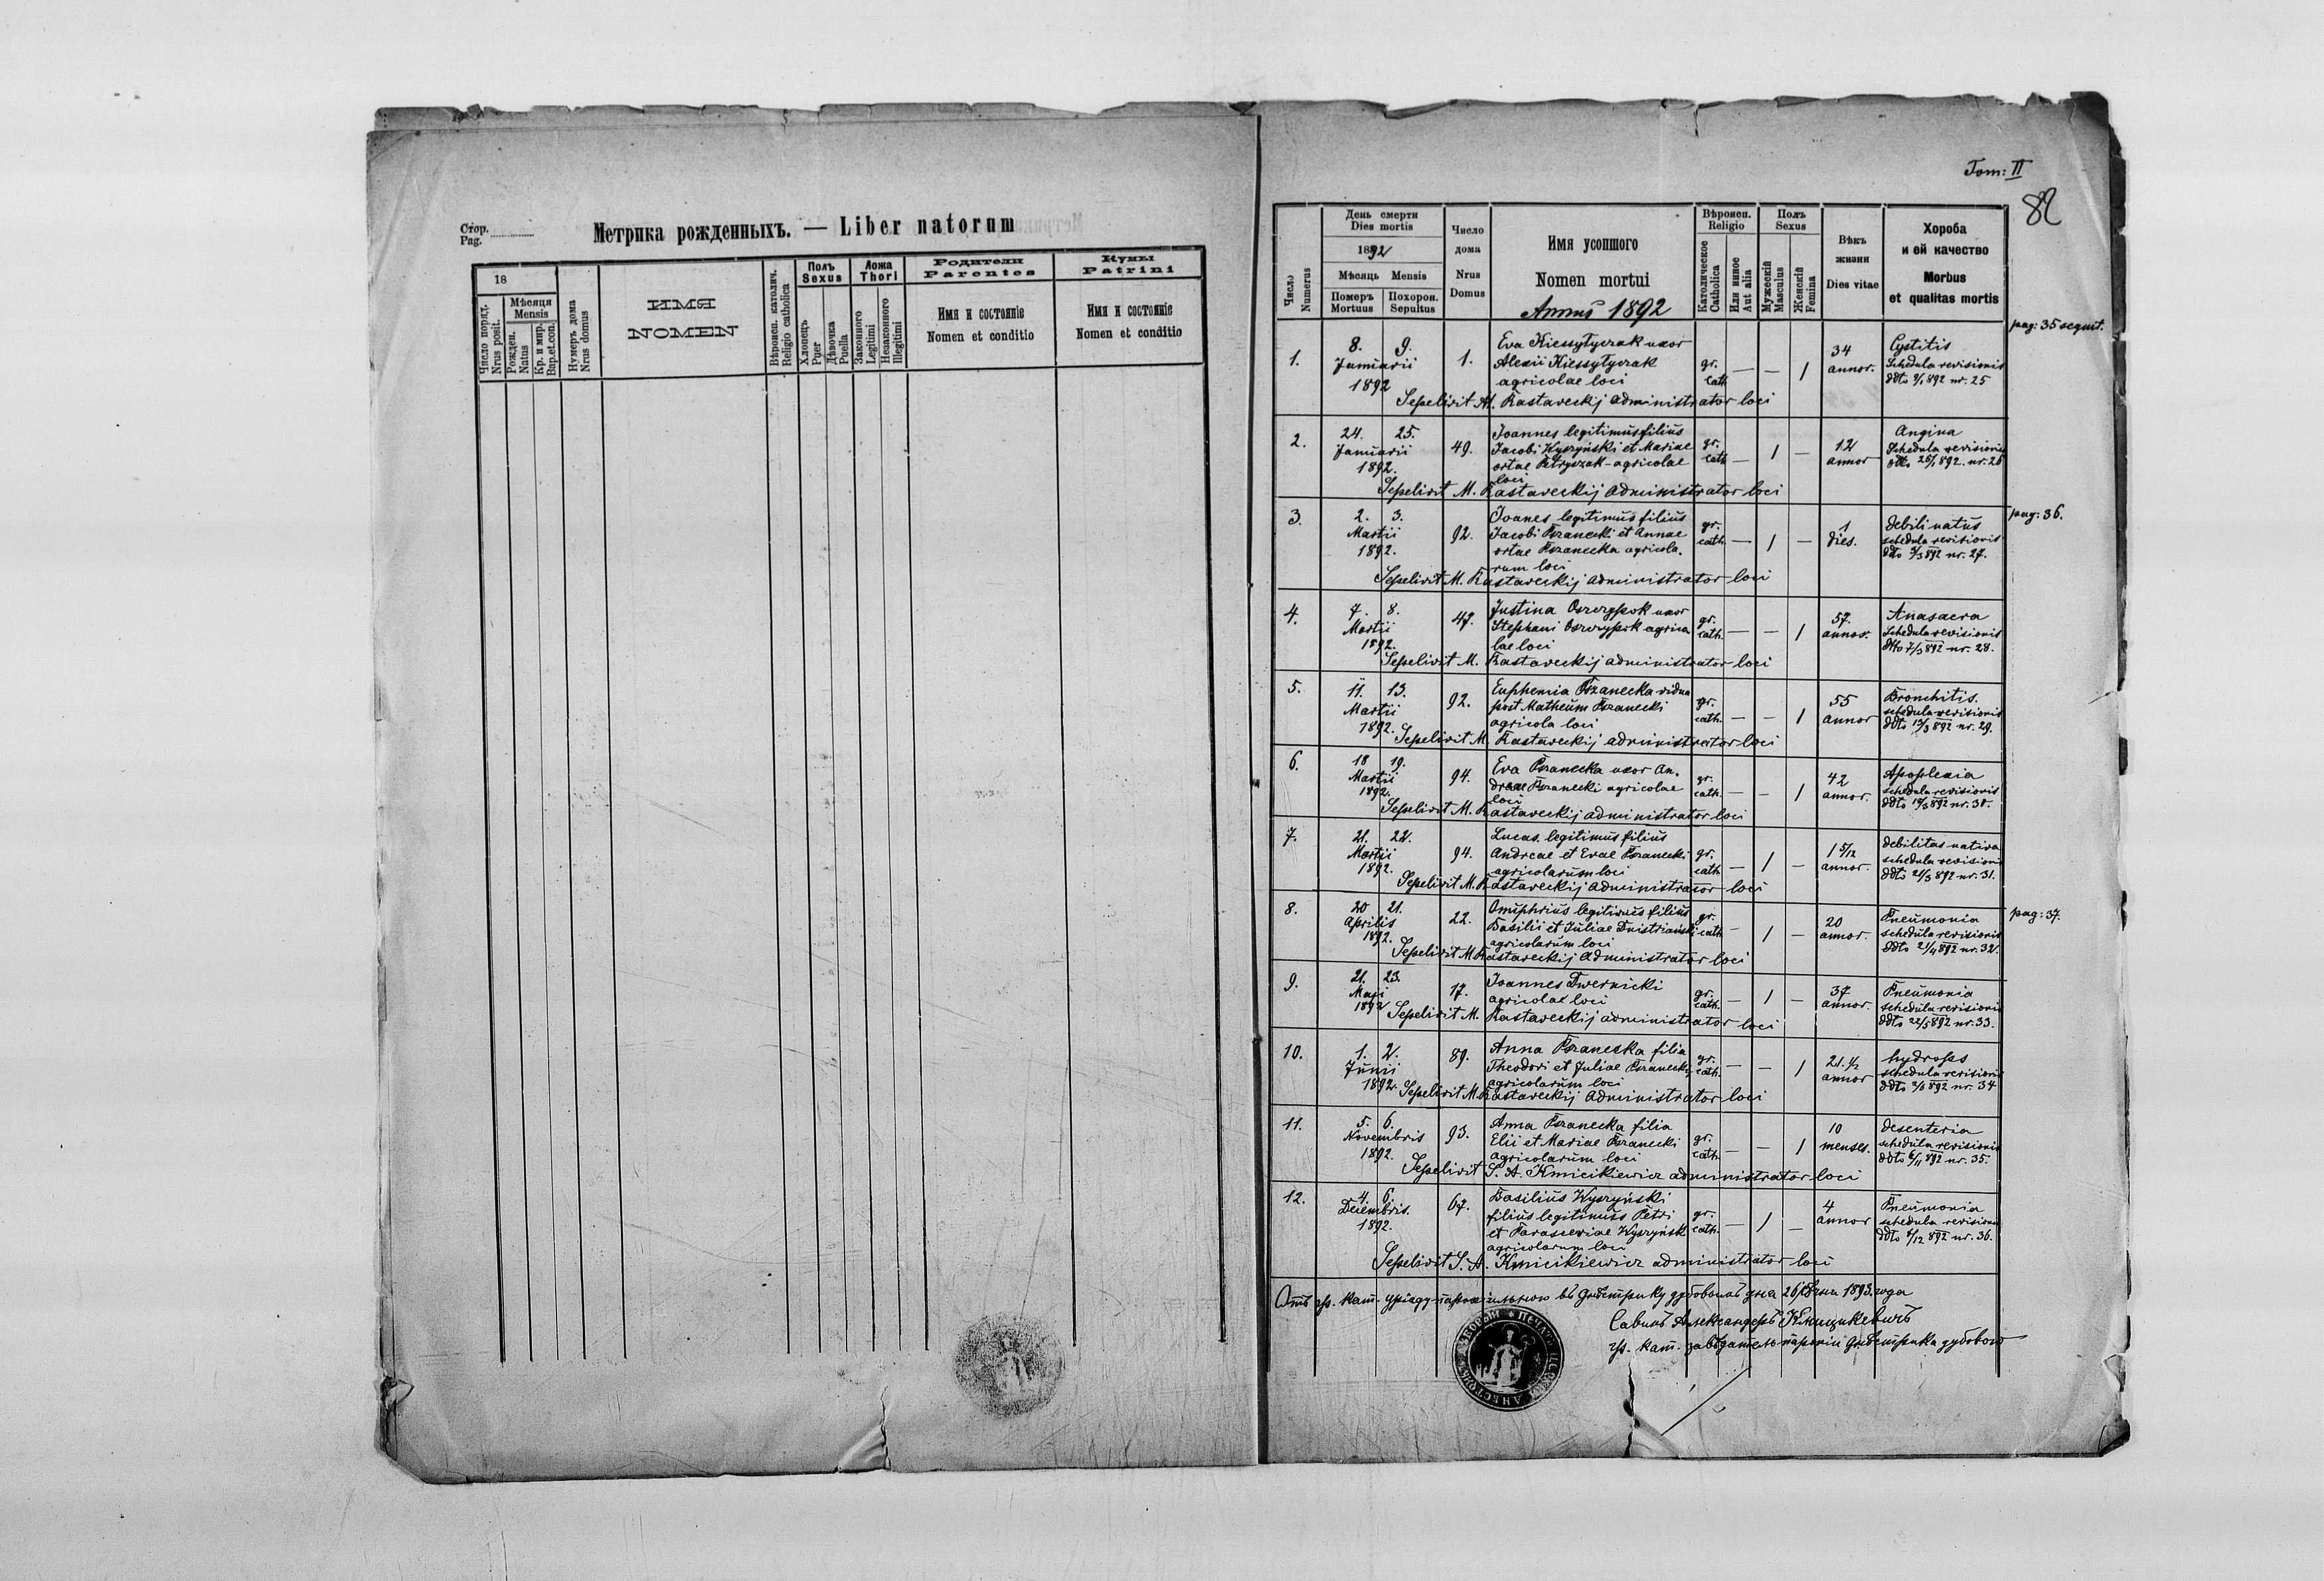 Стор.
Pag.
Метрика рожденныхъ. — Liber natorum
18
Мѣсяця
Mensis
Число поряд.
Nrus posit.
Рожден.
Natus
Кр. и мир.
Bap.et.con.
Нумеръ дома
Nrus domus
ИМЯ
NOMEN
Вѣроисп. католич.
Religio catholica
Полъ
Sexus
Хлопецъ
Puer
Дѣвочка
Puella
Ложа
Thori
Законного
Legitimi
Незаконного
Illegitimi
Родители
Parentes
Имя и состоянiе
Nomen et conditio
Кумы
Patrini
Имя и состоянiе
Nomen et conditio
Tom: II
82
Число
Numerus
День смерти
Dies mortis
1892
Мѣсяць Mensis
Померъ
Mortuus
Похорон.
Sepultus
Число
дома
Nrus
Domus
Имя усопшого
Nomen mortui
Annus 1892
Вѣроисп.
Religio
Католическое
Catholica
Или инное
Aut alia
Полъ
Sexus
Мужескiй
Masculus
Женскiй
Femina
Вѣкъ
жизни
Dies vitae
Хороба
и ей качество
Morbus
et qualitas mortis
pag: 35 sequit.
1. 8. 9. Januarii 1892 1.
Eva Kiessytyczak uxor
Alexii Kiessytyczak
agricolae loci
gr. cath. — — 1 34 annor.
Cystitis
Schedula revisionis
ddto 9/1 892 nr. 25
Sepelivit M. Rastaveckij administrator loci
2. 24. 25. Januarii 1892. 49.
Joannes legitimus filius
Jacobi Kyszyński et Mariae
ortae Petryszak - agricolae
loci
gr. cath — 1 — 12 annor
Angina
Schedula revisionis
ddto 25/1 892. nr. 26
Sepelivit M. Rastaveckij administrator loci
pag: 36.
3. 2. 3. Martii 1892. 92.
Joanes legitimus filius
Jacobi Pszanecki et Annae
ortae Pszanecka agricola-
rum loci
gr. cath. — 1 — 1 dies.
debili natus
schedula revisionis
ddto 3/3 892 nr. 27.
Sepelivit M. Rastaveckij administrator loci
4. 7. 8. Martii 1892. 47.
Justina Oszczypok uxor
Stephani Oszczypok agrico
lae loci
gr. cath. — — 1 57. annor.
Anasacra
Schedula revisionis
ddto 7/3 892 nr. 28.
Sepelivit M. Rastaveckij administrator loci
5. 11. 13. Martii 1892. 92.
Euphemia Pszanecka vidua
post Matheum Pszanecki
agricola loci
gr. cath. — — 1 55 annor
Bronchitis.
schedula revisionis
ddto 13/3 892 nr. 29.
Sepelivit M. Rastaveckij administrator loci
6. 18 19. Martii 1892. 94.
Eva Pszanecka uxor An-
dreae Pszanecki agricolae
loci
gr. cath. — — 1 42 annor.
Apoplexia
schedula revisionis
ddto 19/3 892 nr. 30.
Sepelivit M. Rastaveckij administrator loci
7. 21. 22. Martii 1892. 94.
Lucas legitimus filius
Andreae et Evae Pszanecki
agricolarum loci
gr. cath — 1 — 1 5/12 annor.
debilitas nativa
schedula revisionis
ddto 21/3 892 nr. 31.
Sepelivit M. Rastaveckij administrator loci
pag: 37.
8. 20 21. Aprilis 1892. 22.
Onuphrius legitimus filius
Basilii et Juliae Dnistriański
agricolarum loci
gr. cath — 1 — 20 annor.
Pneumonia
schedula revisionis
ddto 21/4 892 nr. 32.
Sepelivit M. Rastaveckij administrator loci
9. 21. 23. Maji 1892 17.
Joannes Dwernicki
agricolae loci
gr. cath. — 1 — 37 annor.
Pneumonia
schedula revisionis
ddto 22/5 892 nr. 33.
Sepelivit M. Rastaveckij administrator loci
10. 1. 2. Junii 1892. 89.
Anna Pszanecka filia
Theodori et Juliae Pszanecki
agricolarum loci
gr. cath. — — 1 21. 1/2 annor
hydrops
schedula revisionis
ddto 2/6 892 nr. 34
Sepelivit M. Rastaveckij administrator loci
11. 5. 6. Novembris 1892. 93.
Anna Pszanecka filia
Elii et Mariae Pszanecki
agricolarum loci
gr. cath. — — 1 10 menses.
desenteria
schedula revisionis
ddto 6/11 892 nr. 35.
Sepelivit S. A. Kmicikiewicz administrator loci
12. 4. 6. Decembris. 1892. 67.
Basilius Kyszyński
filius legitimus Petri
et Parasceviae Kyszyńsk
agricolarum loci
gr. cath. — 1 — 4 annor
Pneumonia
schedula revisionis
ddto 6/12 892 nr. 36.
Sepelivit S. A. Kmicikiewicz administrator loci
Отъ гр. кат. уряду парохіяльного въ Днѣстрику дубовомъ дня 1893. года
Савинъ Александеръ Кмицикевичъ
гр. кат. завѣдатель парохіи Днѣстрика дубового